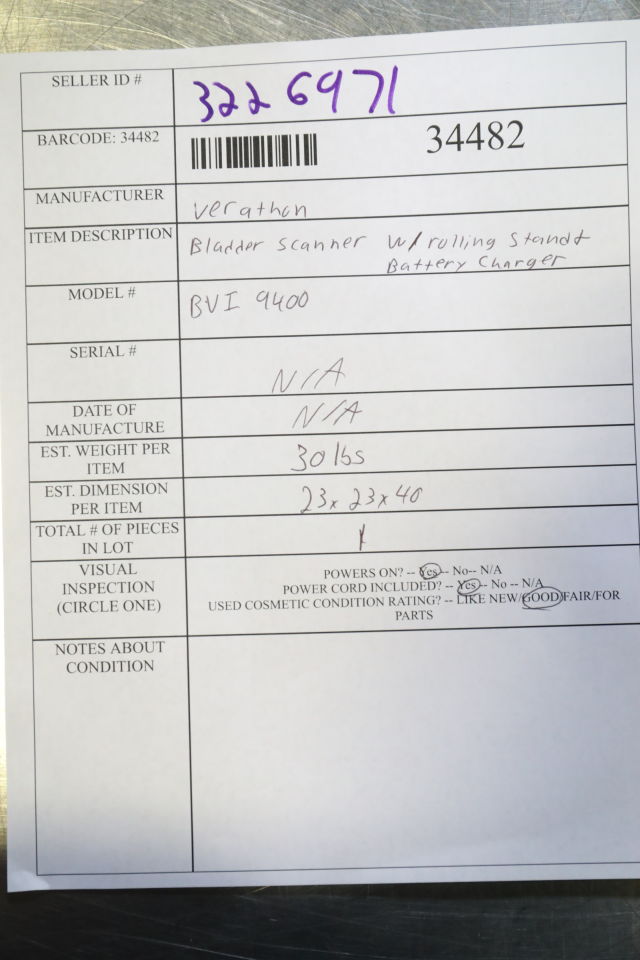 SELLER ID #
3226971
BARCODE: 34482
34482
MANUFACTURER
Verathon
ITEM DESCRIPTION
Bladder Scanner w/ rolling Stand &
Battery Charger
MODEL #
BVI 9400
SERIAL #
N/A
DATE OF
MANUFACTURE
N/A
EST. WEIGHT PER
ITEM
30 lbs
EST. DIMENSION
PER ITEM
23x 23x 40
TOTAL # OF PIECES
IN LOT
1
VISUAL
INSPECTION
(CIRCLE ONE)
POWERS ON? -- Yes -- No-- N/A
POWER CORD INCLUDED? -- Yes -- No -- N/A
USED COSMETIC CONDITION RATING? -- LIKE NEW/GOOD/FAIR/FOR
PARTS
NOTES ABOUT
CONDITION